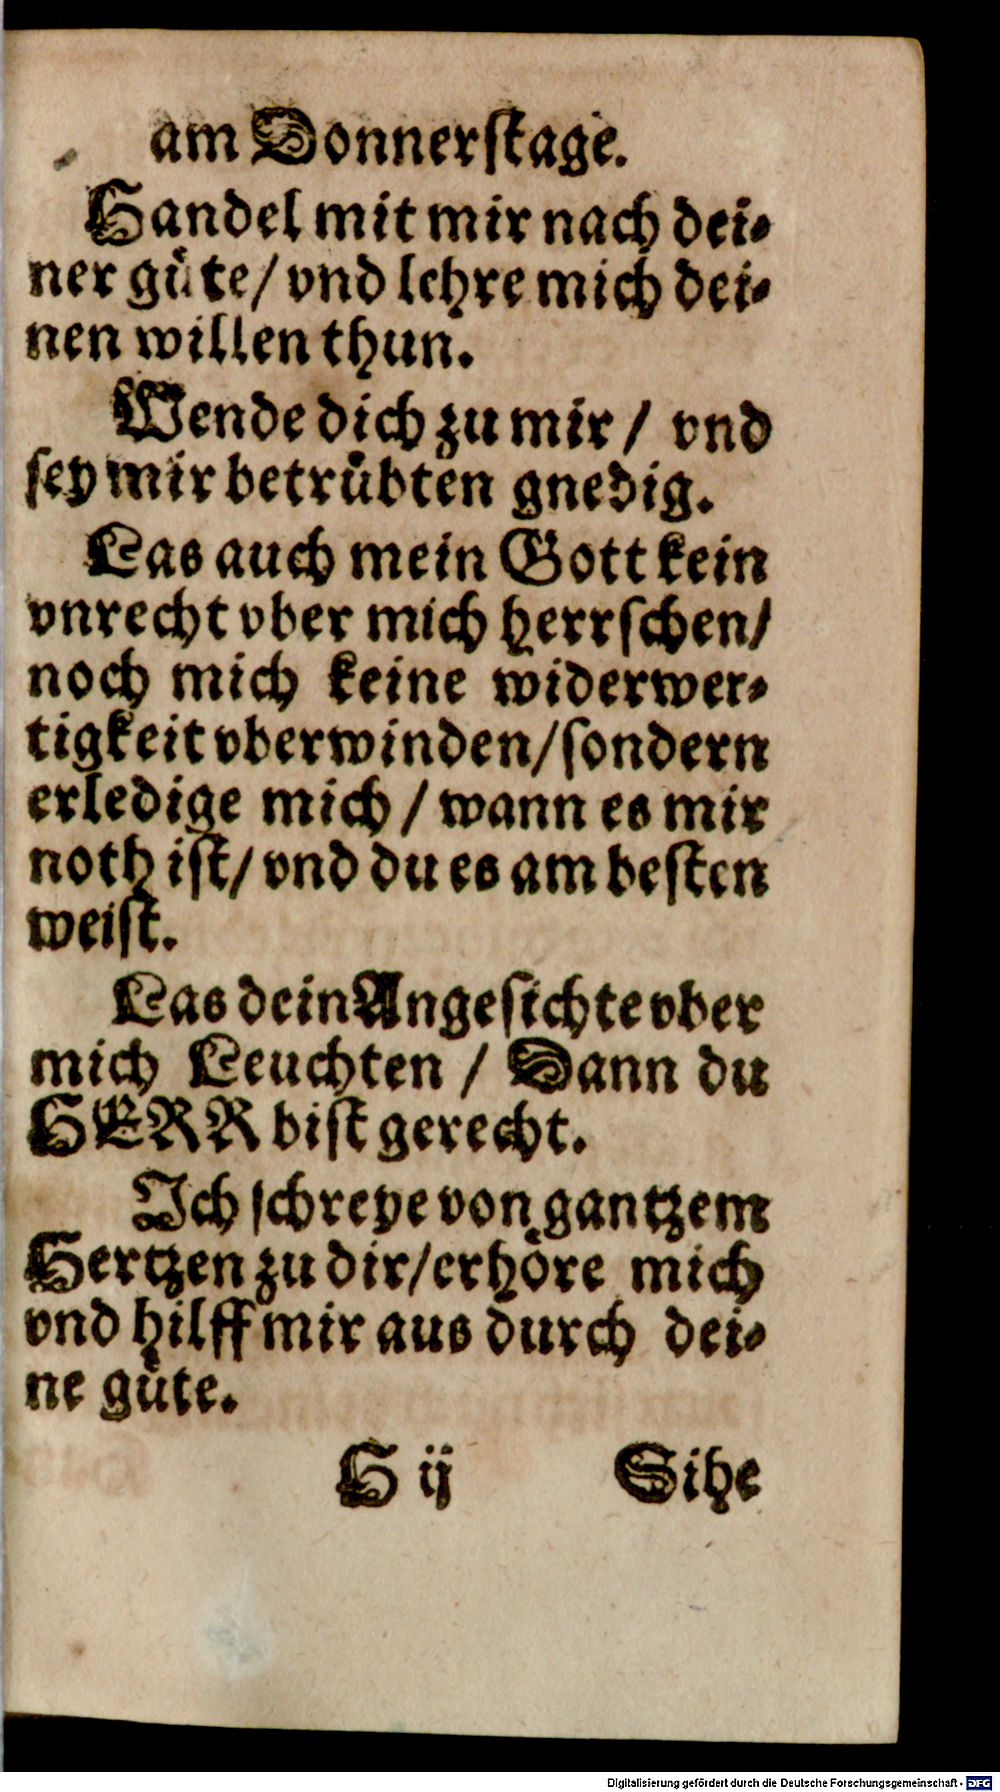 am Donnerſtage.
Handel mit mir nach dei⸗
ner guͤte/ vnd lehre mich dei⸗
nen willen thun.
Wende dich zu mir / vnd
ſey mir betruͤbten gnedig.
Las auch mein Gott kein
vnrecht vber mich herrſchen/
noch mich keine widerwer⸗
tigkeit vberwinden/ſondern
erledige mich / wann es mir
noth iſt/ vnd du es am beſten
weiſt.
Las dein Angeſichte vber
mich Leuchten / Dann du
HERR biſt gerecht.
Ich ſchreye von gantzem
Hertzen zu dir/erhoͤre mich
vnd hilff mir aus durch dei⸗
ne guͤte.
H ij Sihe
Digitalisierung gefördert durch die Deutsche Forschungsgemeinschaft - DFG